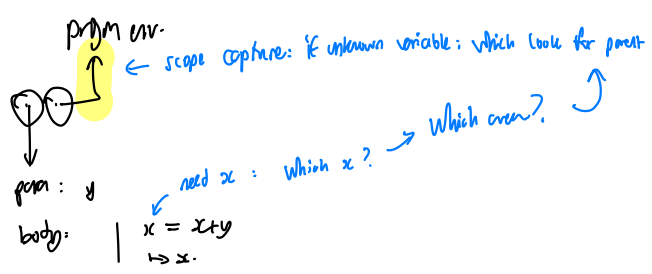 prgm env.
← scope capture: if unknown variable: which look for parent
Which area?
need x : Which x?
para : y
body: | x = x+y
↦ x.